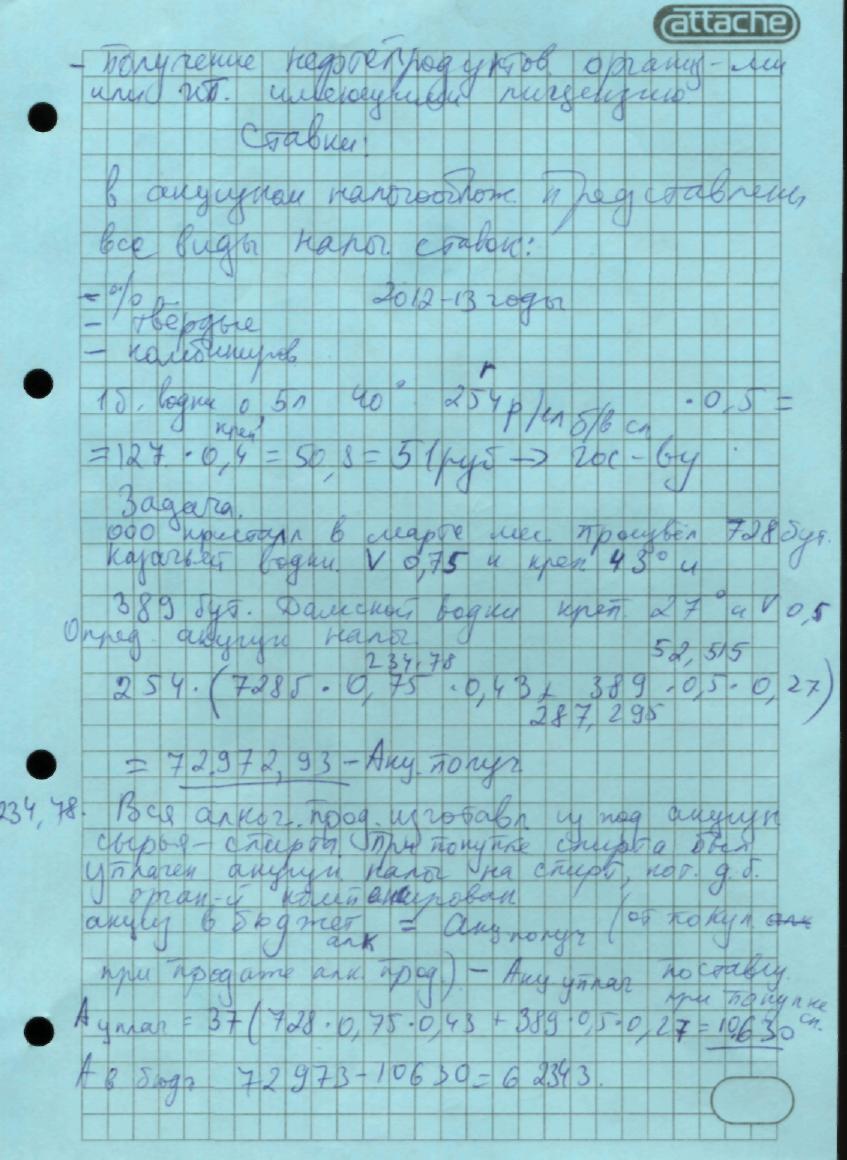 attache
- Получение нефтепродуктов органи-ми
или ИП. имеющими лицензию
Ставки:
в акцизном налогооблож. представлены
все виды налог. ставок:
- % 2012-13 годы
- твёрдые
- комбиниров
1 б. водки 0,5л 40° 254р/л б/в сп · 0,5 =
креп.
= 127 · 0,4 = 50,8 = 51руб → гос-ву
Задача.
ООО кристалл в марте мес произвёл 728 бут.
казачьей водки. V 0,75 и креп 43° и
389 бут. Дамской водки креп. 27° и V 0,5
Опред. акцизн налог.
234,78 52,515
254 · (728б · 0,75 · 0,43 + 389 · 0,5 · 0,27)
287,295
= 72.972,93 - Акц. получ
234,78. Вся алког. прод. изготавл из под акцизн
сырья - спирта. при покупке спирта был
уплачен акцизн налог на спирт, кот. д.б.
орган-й компенсирован
акциз в бюджет = Акц получ (от покуп
алк
при продаже алк прод) - Акц уплач поставщ.
при покупке сп.
А уплач = 37 (728 · 0,75 · 0,43 + 389 · 0,5 · 0,27 = 10630
А в бюдж 72973 - 10630 = 62343.